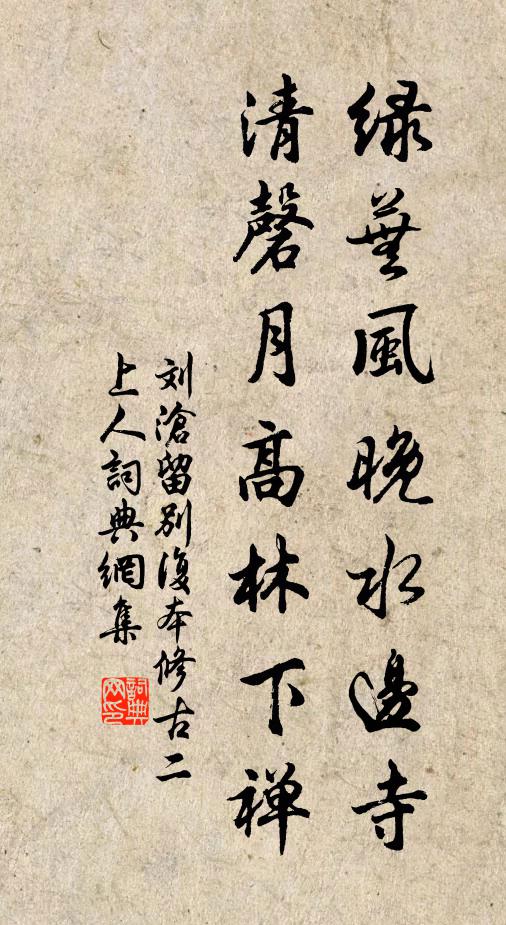 緑蕪風晚水邊寺
清磬月高林下禅
刘滄留别復本修古二
上人詞典網集
詞典
网印